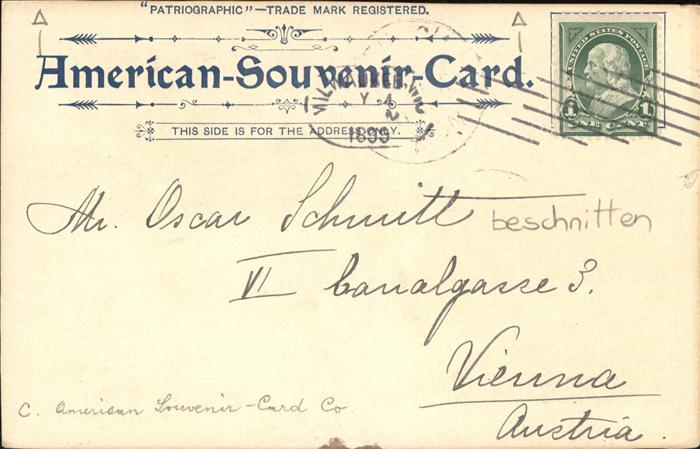 "PATRIOGRAPHIC"—TRADE MARK REGISTERED.
American-Souvenir-Card.
THIS SIDE IS FOR THE ADDRESS ONLY.
1899
UNITED STATES POSTAGE
1 1
ONE CENT
Mr. Oscar Schmitt beschnitten
VI Canalgasse 3.
Vienna
Austria.
C. American Souvenir-Card Co